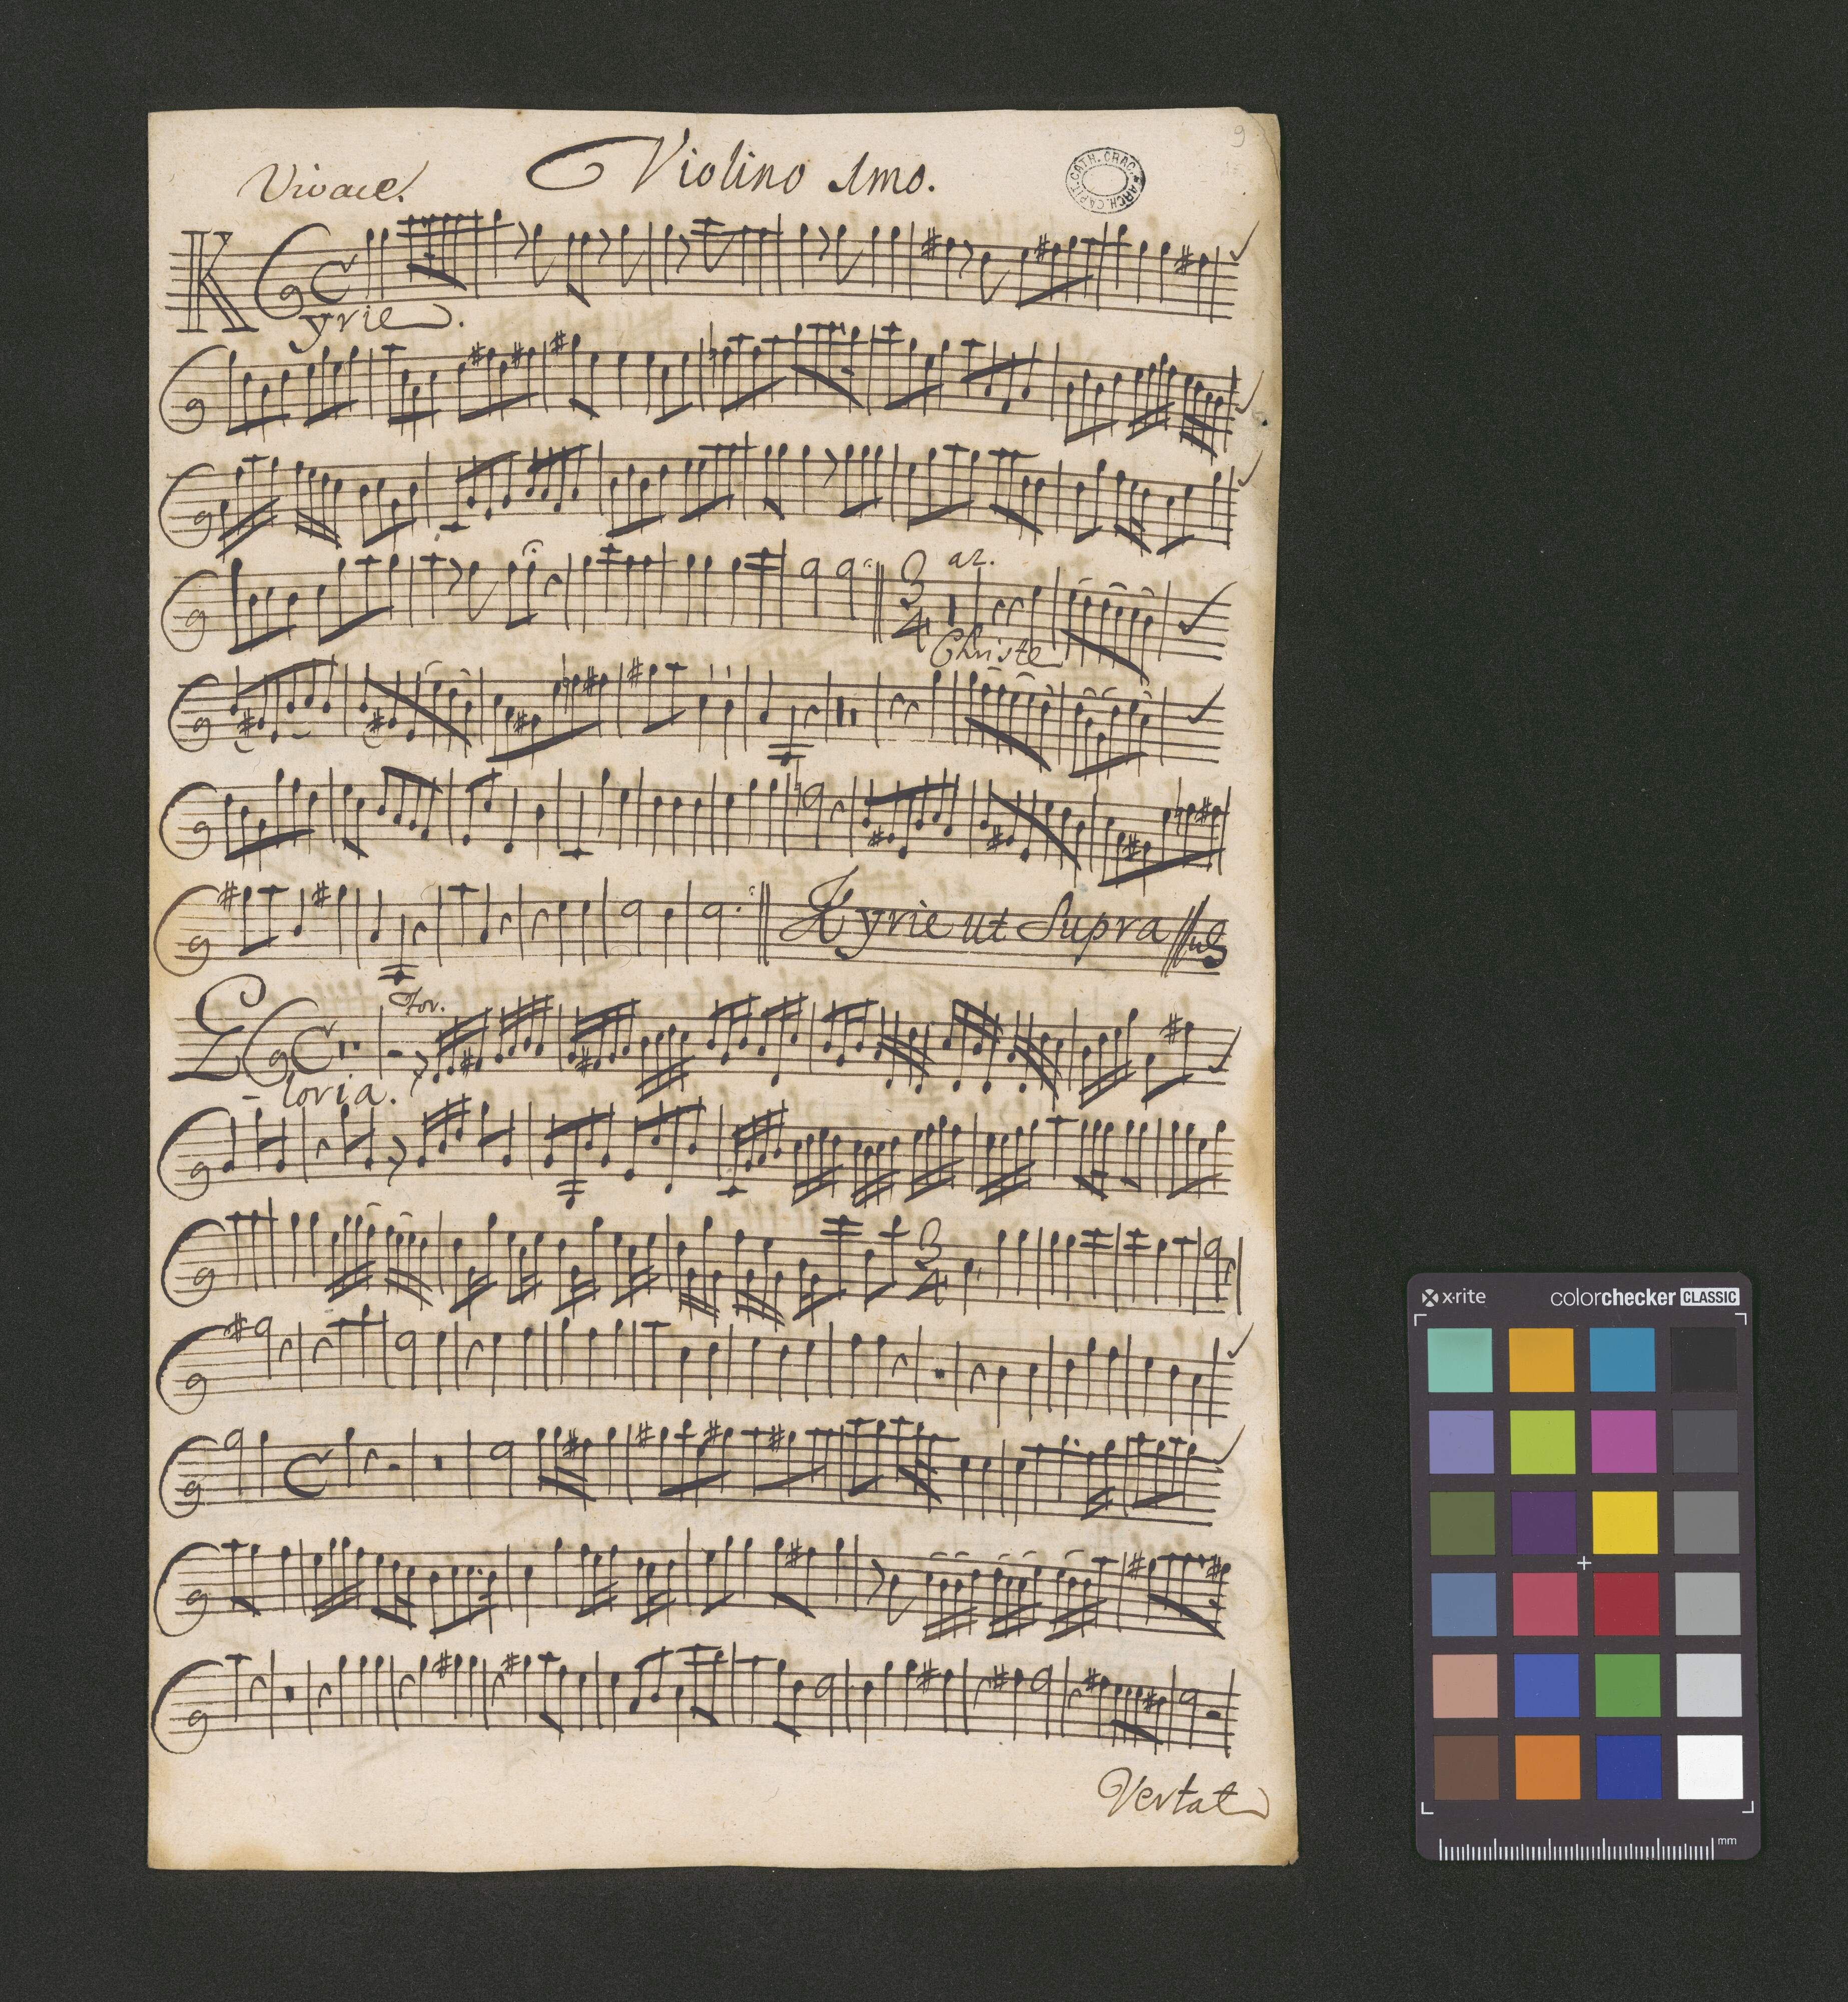 9
Violino 1mo.
Vivace.
ARCH. CAPIT. CATH. CRAC.
Kyrie.
3
4
Christe
Kyrie ut Supra
Gloria.
3
4
Vertat
x-rite
colorchecker CLASSIC
mm